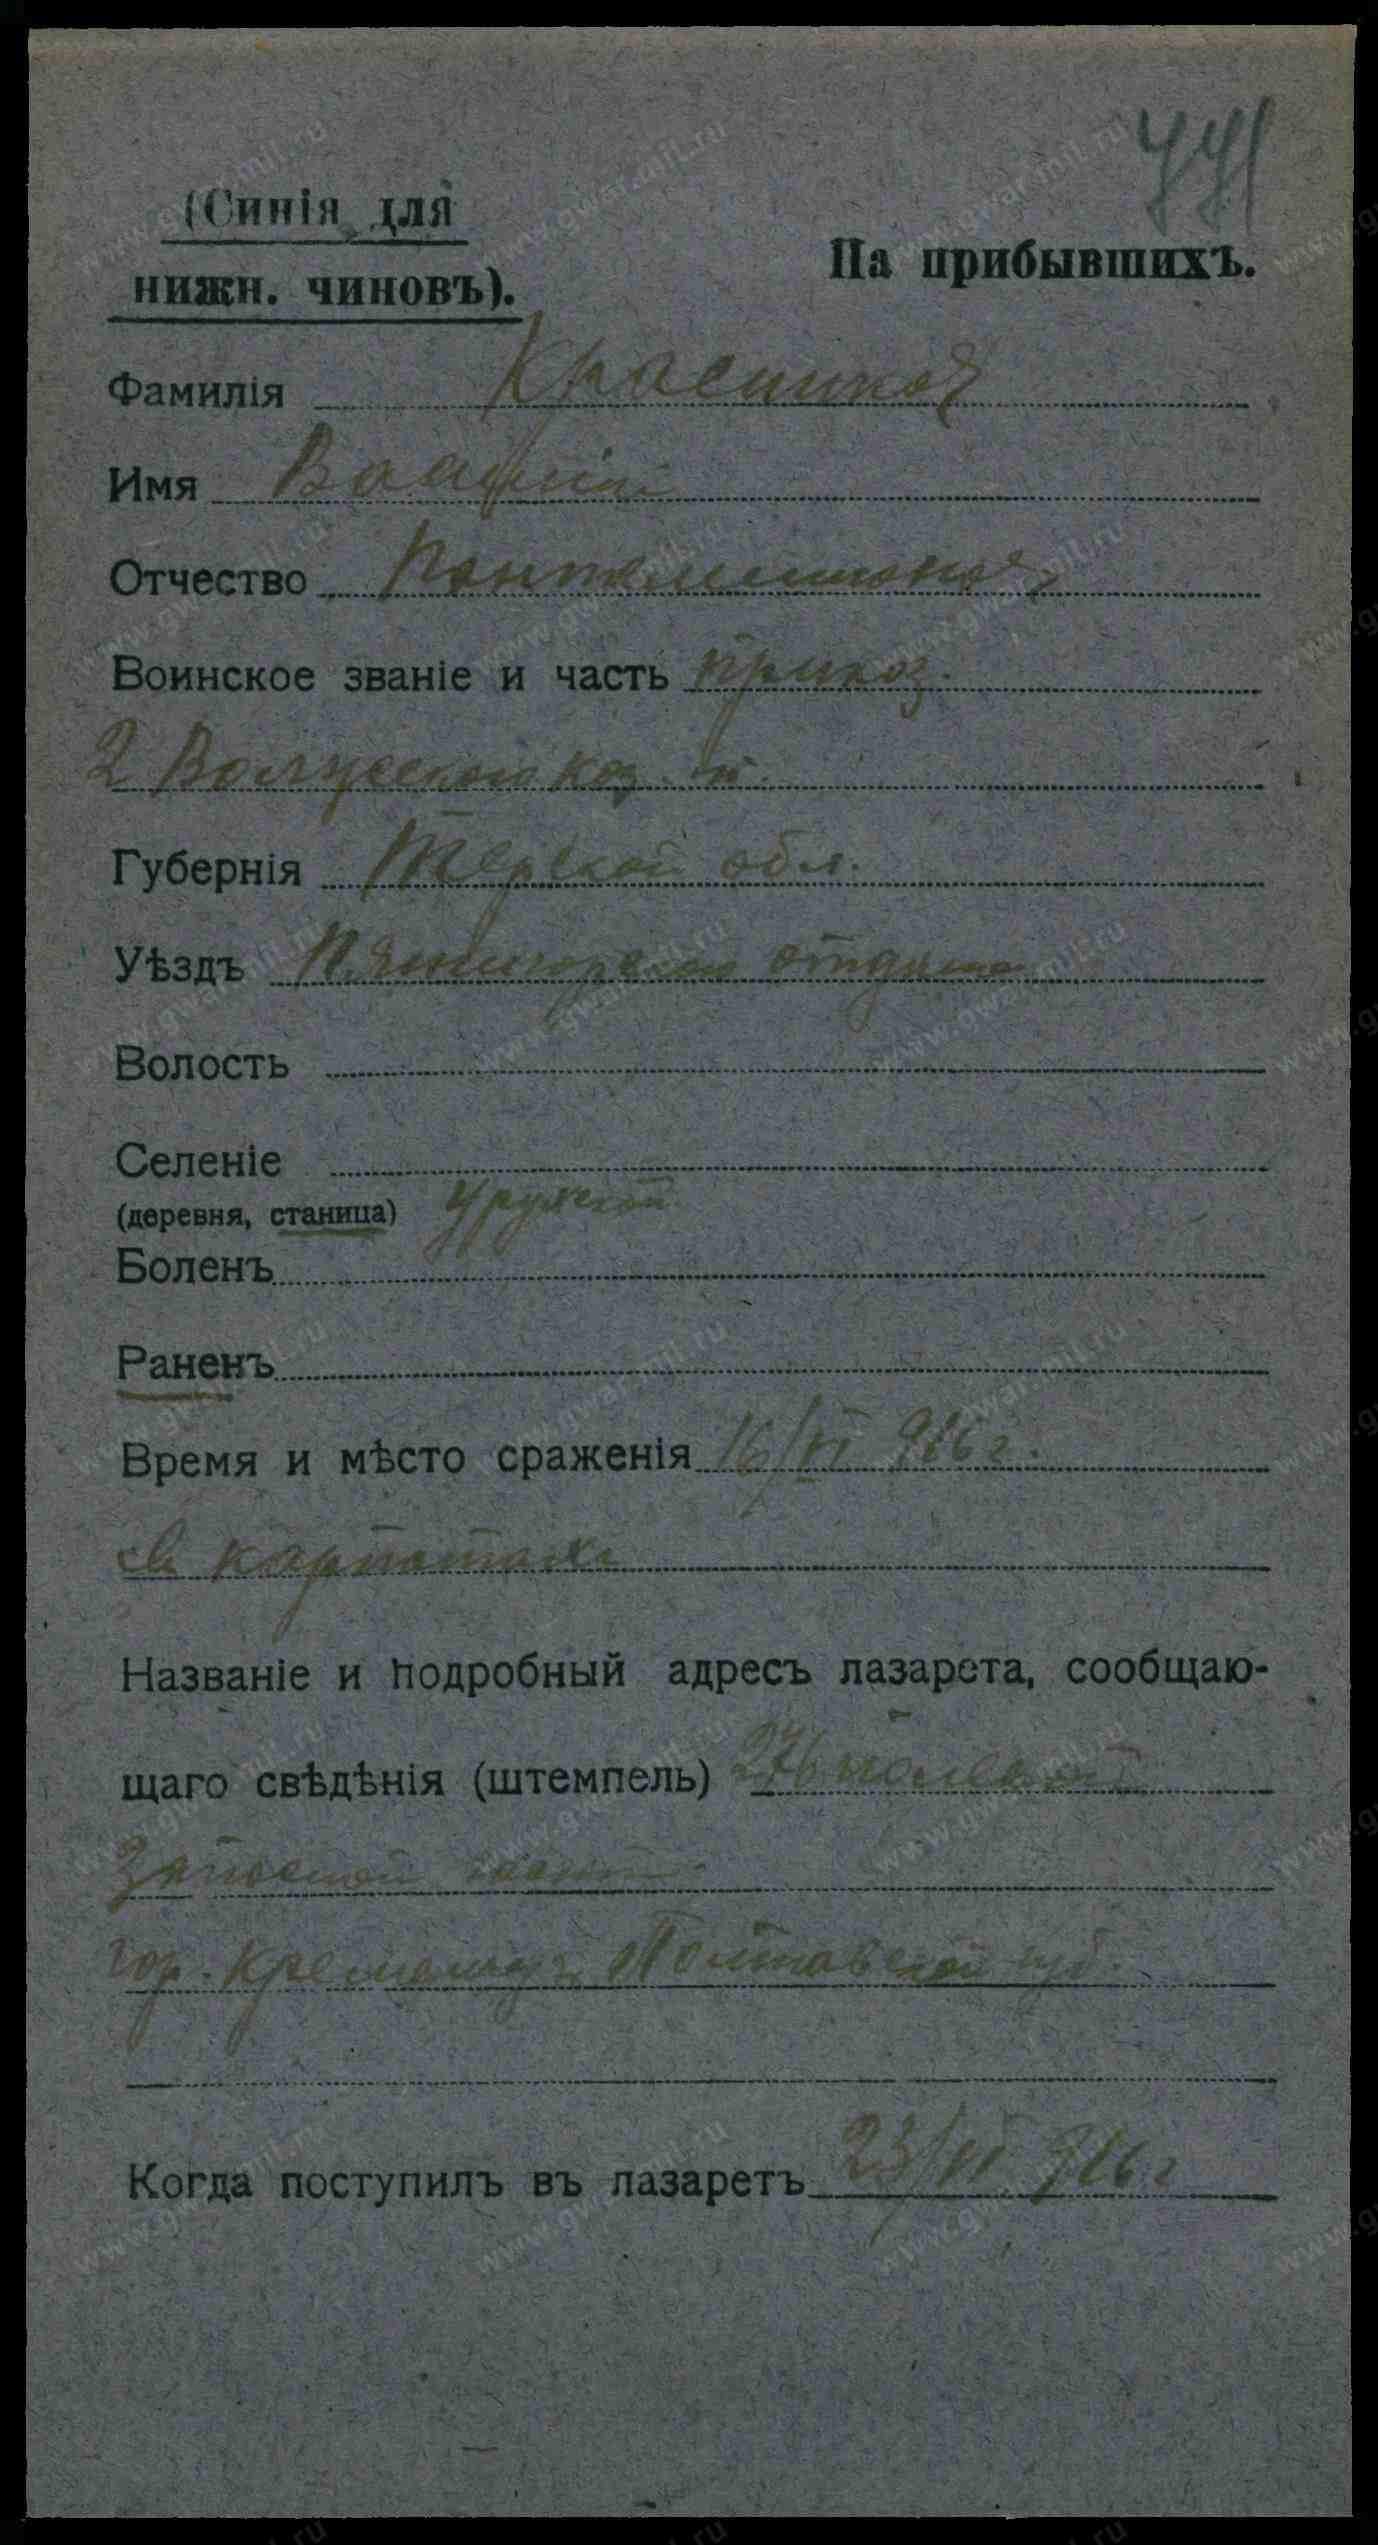 (Синія для
На прибывшихъ.
нижн. чиновъ).
Фамилія
Имя
Отчество
Воинское званіе и часть приказ.
2 Волгускаго каз. п.
Губернія Терской обл.
Уѣздъ Пятигорскаго отдѣла
Волость
Селеніе
(деревня, станица) Урухской
Боленъ
Раненъ
Время и мѣсто сраженія 16/VI 916 г.
въ карпатахъ
Названіе и подробный адресъ лазарета, сообщаю-
щаго свѣдѣнія (штемпель) полевой
Запасной госпит.
гор. Кременчугъ Полтавской губ.
Когда поступилъ въ лазаретъ 23/VI 916 г